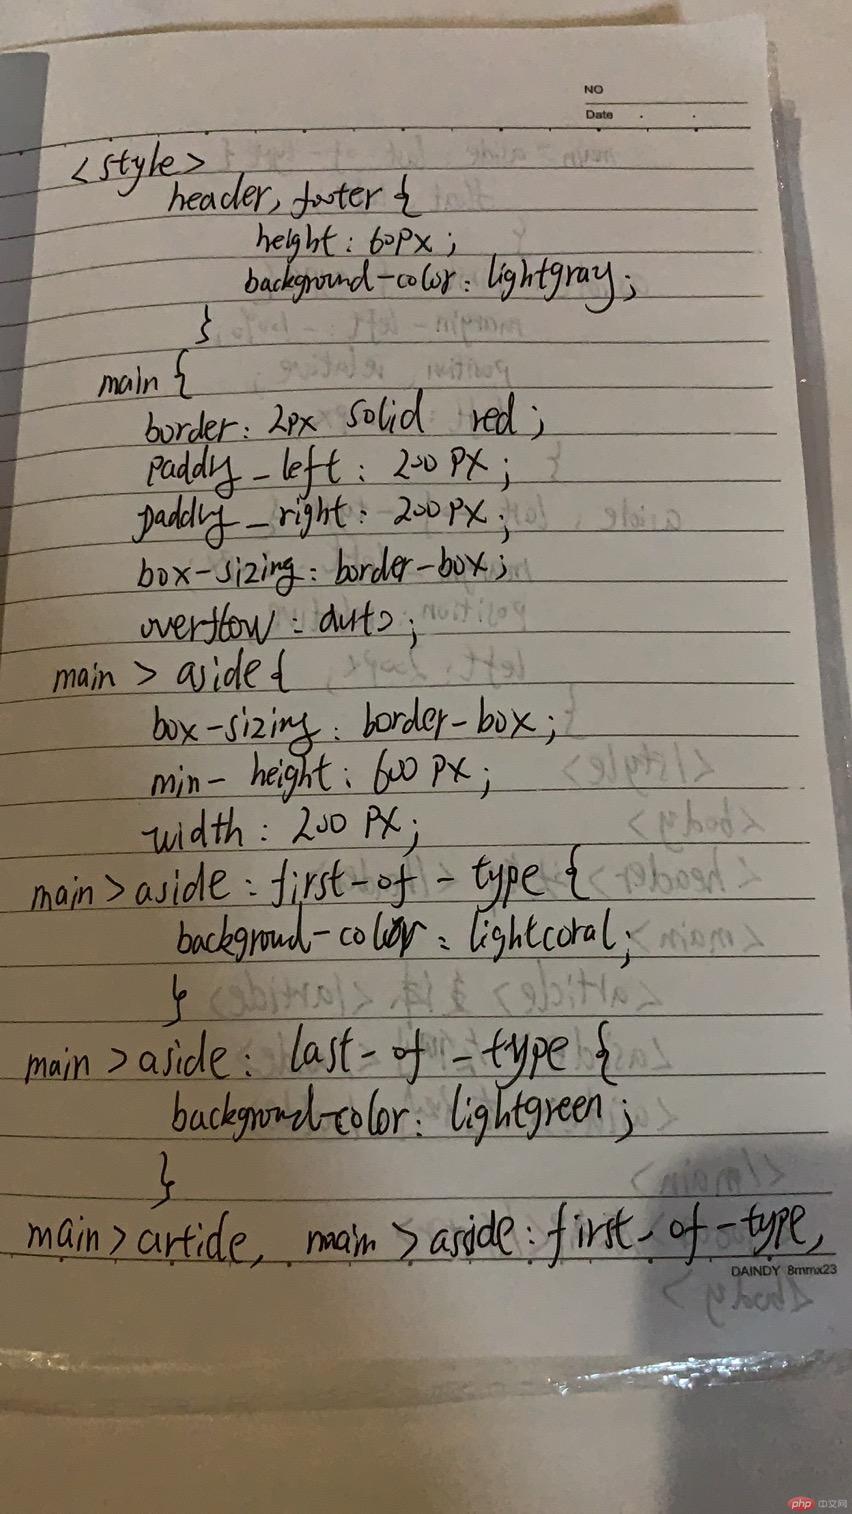 NO
Date
<style>
header, footer {
height : 60px ;
background-color : lightgray ;
}
main {
border : 2px solid red ;
paddy_left : 200 PX ;
paddly_right : 200 PX ;
box-sizing : border-box ;
overflow : auto ;
main > aside {
box-sizing : border-box ;
min- height : 600 PX ;
width : 200 PX ;
main > aside : first-of - type {
backgroud-color : lightcoral ;
}
main > aside : last- of - type {
background-color : lightgreen ;
}
main > artide, main > aside : first- of -type,
DAINDY 8mmx23
php 中文网